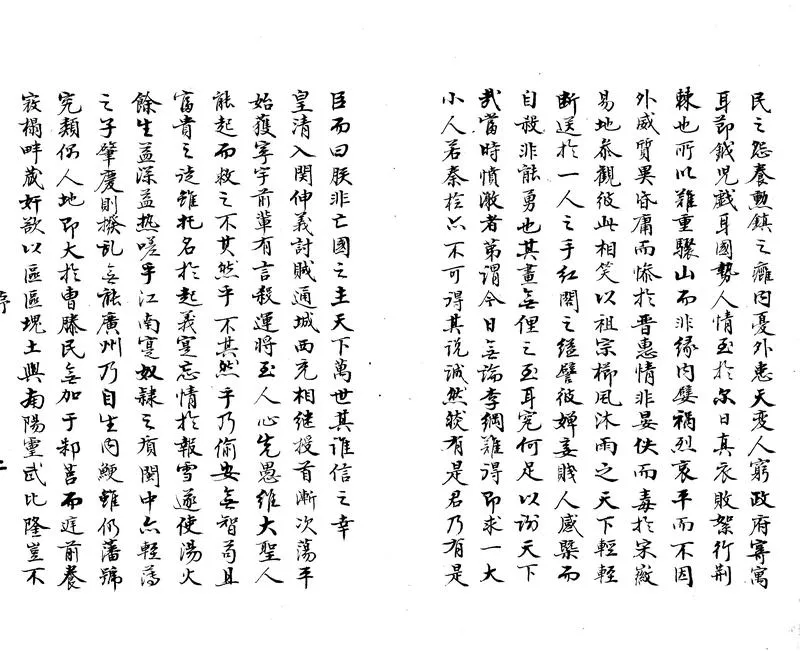 民之怨養勳鎮之癰内憂外患天變人窮政府寄寓
耳節鉞兒戲耳國勢人情至於尔日真衣敗絮行荆
棘也所以難重驪山而非緣内嬖禍烈哀平而不因
外威質異昏庸而慘於晋惠情非晏佚而毒於宋徽
易地叅觀彼此相笑以祖宗櫛風沐雨之天下輕輕
断送於一人之手紅閣之縊譬彼婢妾賤人感槩而
自殺非能勇也其畫無俚之至耳究何足以謝天下
㦲當時憤激者第謂今日無論李綱難得即求一大
小人若秦檜亦不可得其説誠然䏻有是君乃有是
臣而曰朕非亡國之主天下萬世其誰信之幸
皇清入関仲義討賊通城西充相継授首漸次蕩平
始獲寧宇前輩有言殺運將至人心先愚維大聖人
能起而救之不其然乎不其然乎乃偷安無智苟且
富貴之徒雖托名於起義寔忘情於報雪遂使湯火
餘生益深益热嗟乎江南寔奴隷之湏閩中亦輕薄
之子肇慶則撥乱無能廣州乃自生内鯁雖仍藩號
究類偶人地即大於曹滕民無加于邾莒而庭前養
寇榻畔蔵奸欲以區區塊土與南陽靈武比隆豈不
序
二